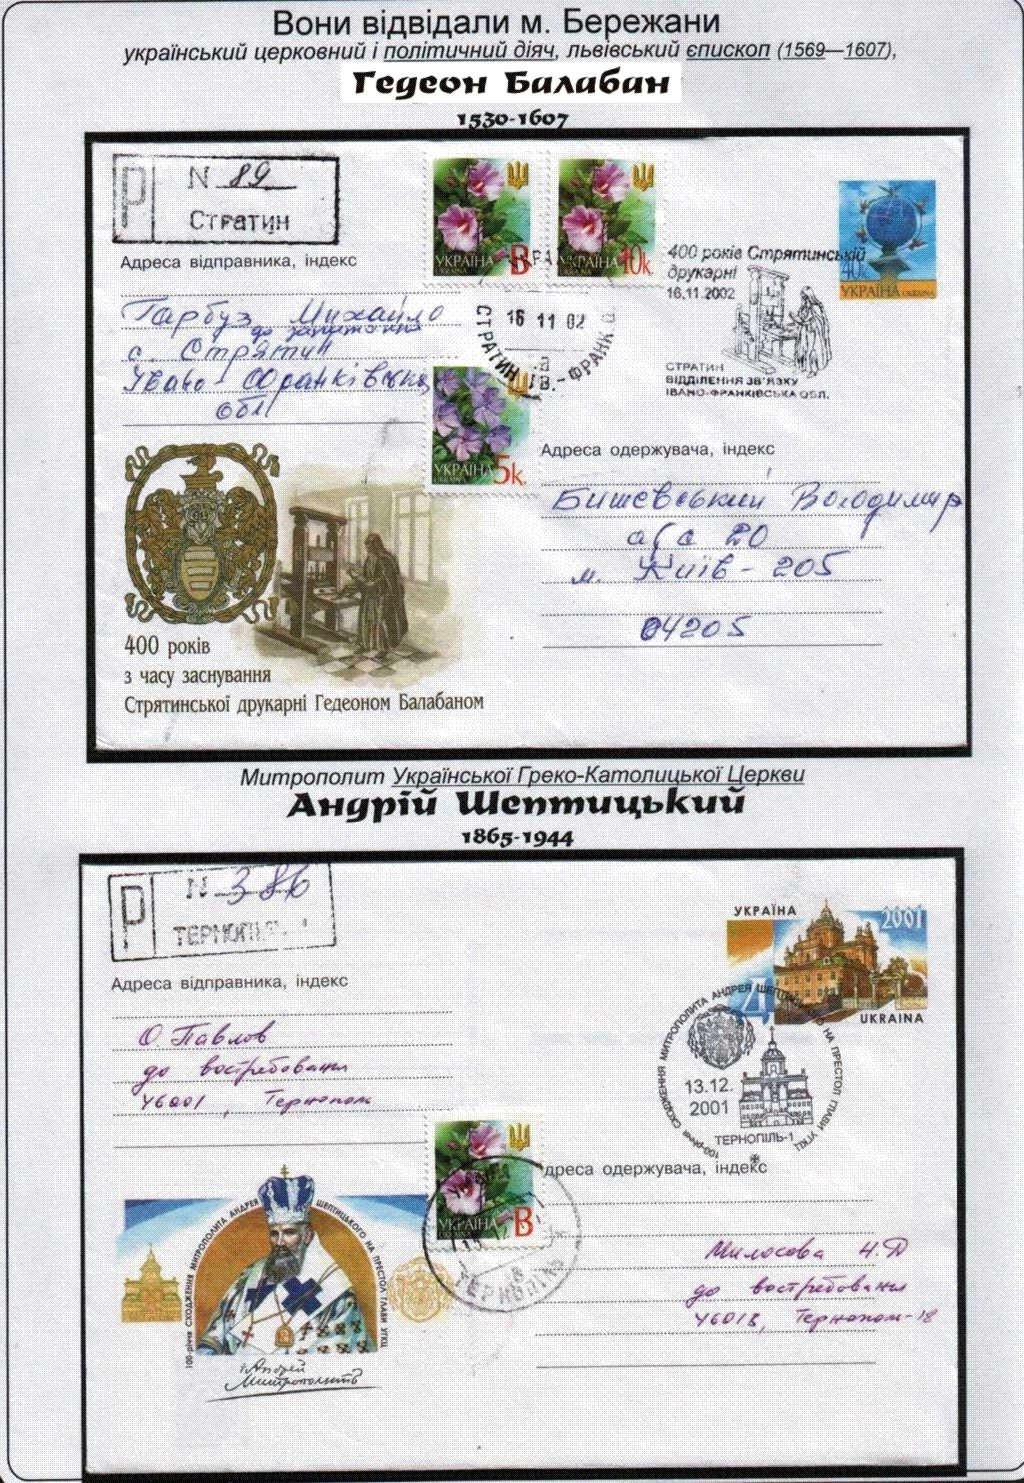 Вони відвідали м. Бережани
український церковний і політичний діяч, львівський єпископ (1569—1607),
Гедеон Балабан
1530-1607
Р
N 89
Стратин
Адреса відправника, індекс
Гарбуз Михайло
до запитання
с. Стрятин
Івано-Франківська
обл
УКРАЇНА
В
УКРАЇНА
10к
400 років Стрятинській
друкарні
16.11.2002
40к
УКРАЇНА
СТРАТИН ІВ.-ФРАНК.
16 11 02
а
СТРАТИН
ВІДДІЛЕННЯ ЗВ'ЯЗКУ
ІВАНО-ФРАНКІВСЬКА ОБЛ.
УКРАЇНА
5к
Адреса одержувача, індекс
Бишевський Володимир
а/с 20
м. Київ-205
04205
400 років
з часу заснування
Стрятинської друкарні Гедеоном Балабаном
Митрополит Української Греко-Католицької Церкви
Андрій Шептицький
1865-1944
Р
N 386
ТЕРНОПІЛЬ 1
Адреса відправника, індекс
О. Павлов
до востребования
46001, Тернополь
УКРАЇНА
2001
Д
UKRAINA
100-річчя СХОДЖЕННЯ МИТРОПОЛИТА АНДРЕЯ ШЕПТИЦЬКОГО НА ПРЕСТОЛ ГЛАВИ УГКЦ
13.12.
2001
ТЕРНОПІЛЬ-1
УКРАЇНА
В
ТЕРНОПІЛЬ
в
дреса одержувача, індекс
Милосова Н.Д
до востребования
46018, Тернополь-18
100-річчя СХОДЖЕННЯ МИТРОПОЛИТА АНДРЕЯ ШЕПТИЦЬКОГО НА ПРЕСТОЛ ГЛАВИ УГКЦ
+Андрей
Митрополитъ